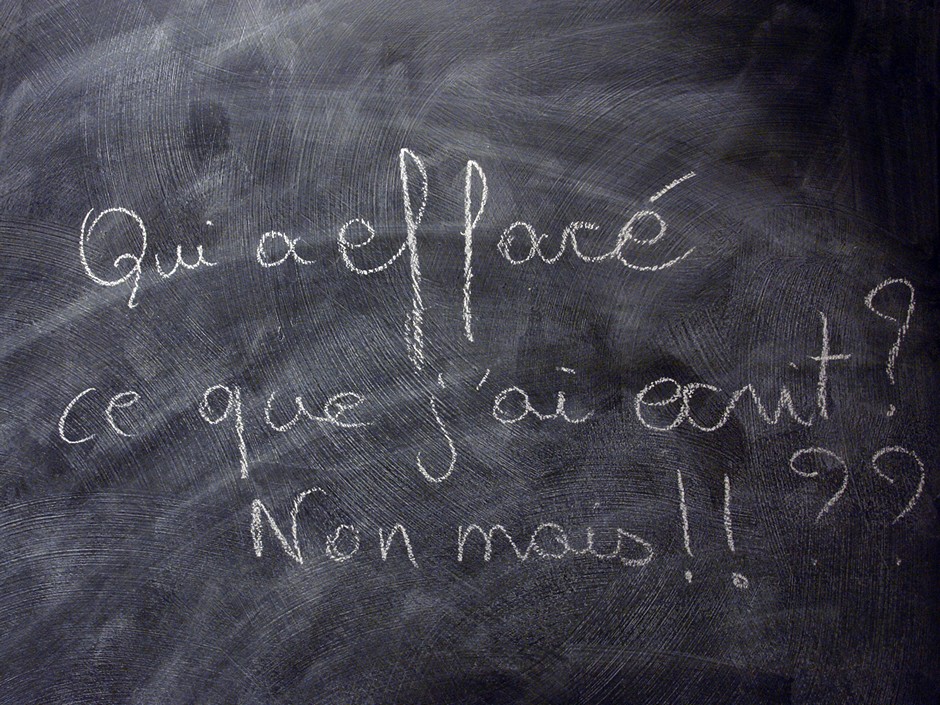 Qui a effacé
ce que j'ai ecrit?
Non mais!! ??